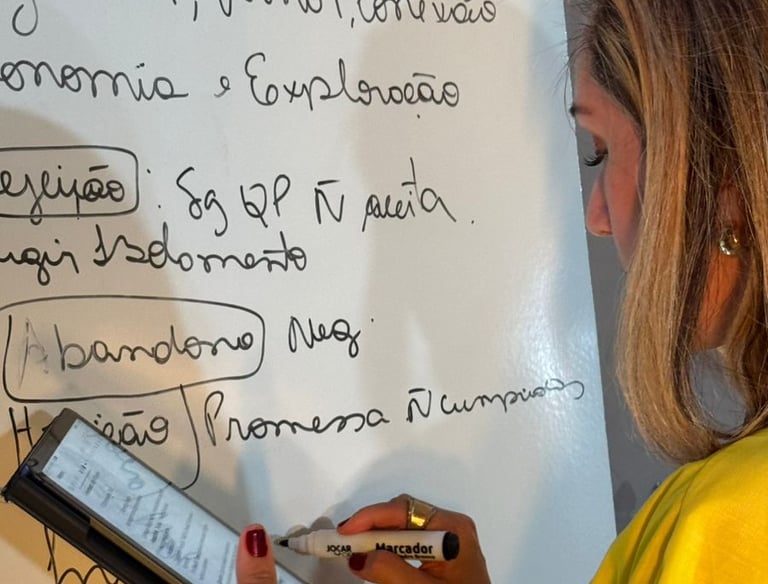 , conexão
onomia e Exploração
ejeição : Sg QP Ñ aceita.
ugir Isolamento
Abandono Neg.
Promessa Ñ cumpridas
JOCAR
Marcador